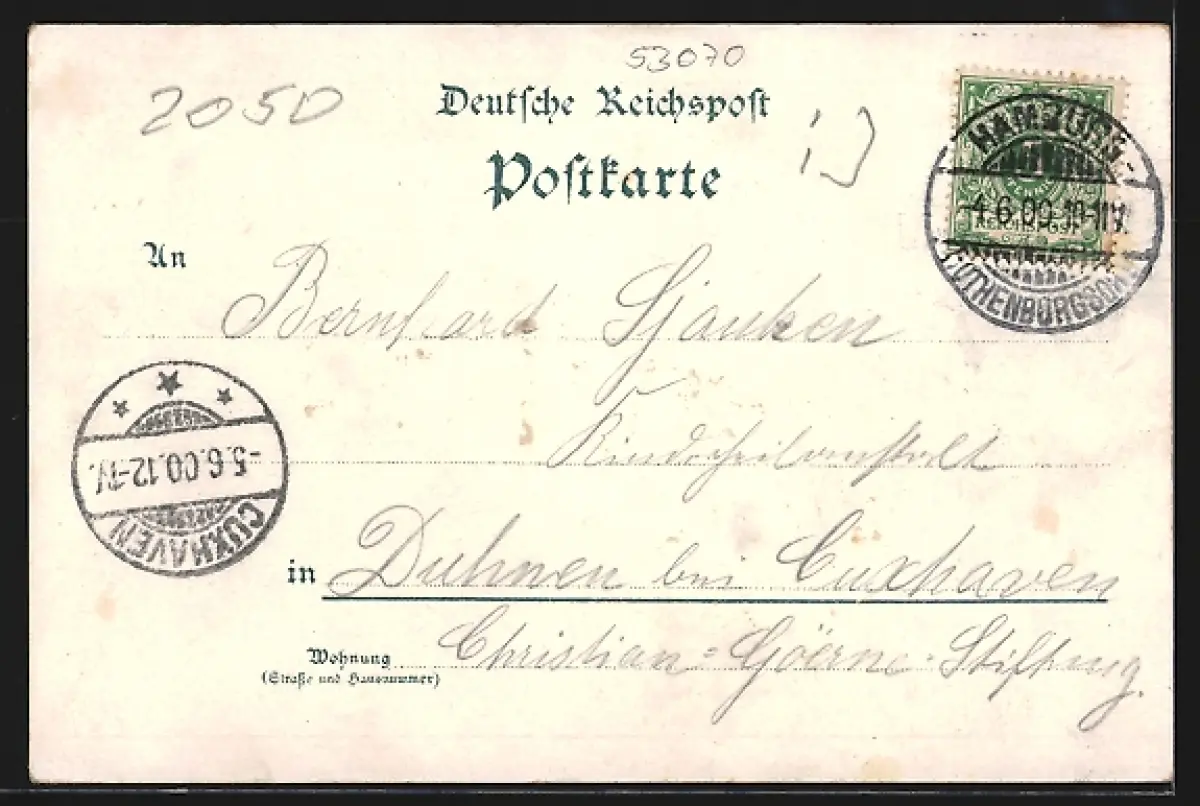 53070
2050
Deutsche Reichspost
Postkarte
HAMBURG
4.6.00.10-11V.
REICHSPOST
An
Bernhard Sjauken
-5.6.00.12-1V.
CUXHAVEN
Kinderheilanstalt
in Duhnen bei Cuxhaven
Wohnung Christian-Göerne-Stiftung
(Straße und Hausnummer)